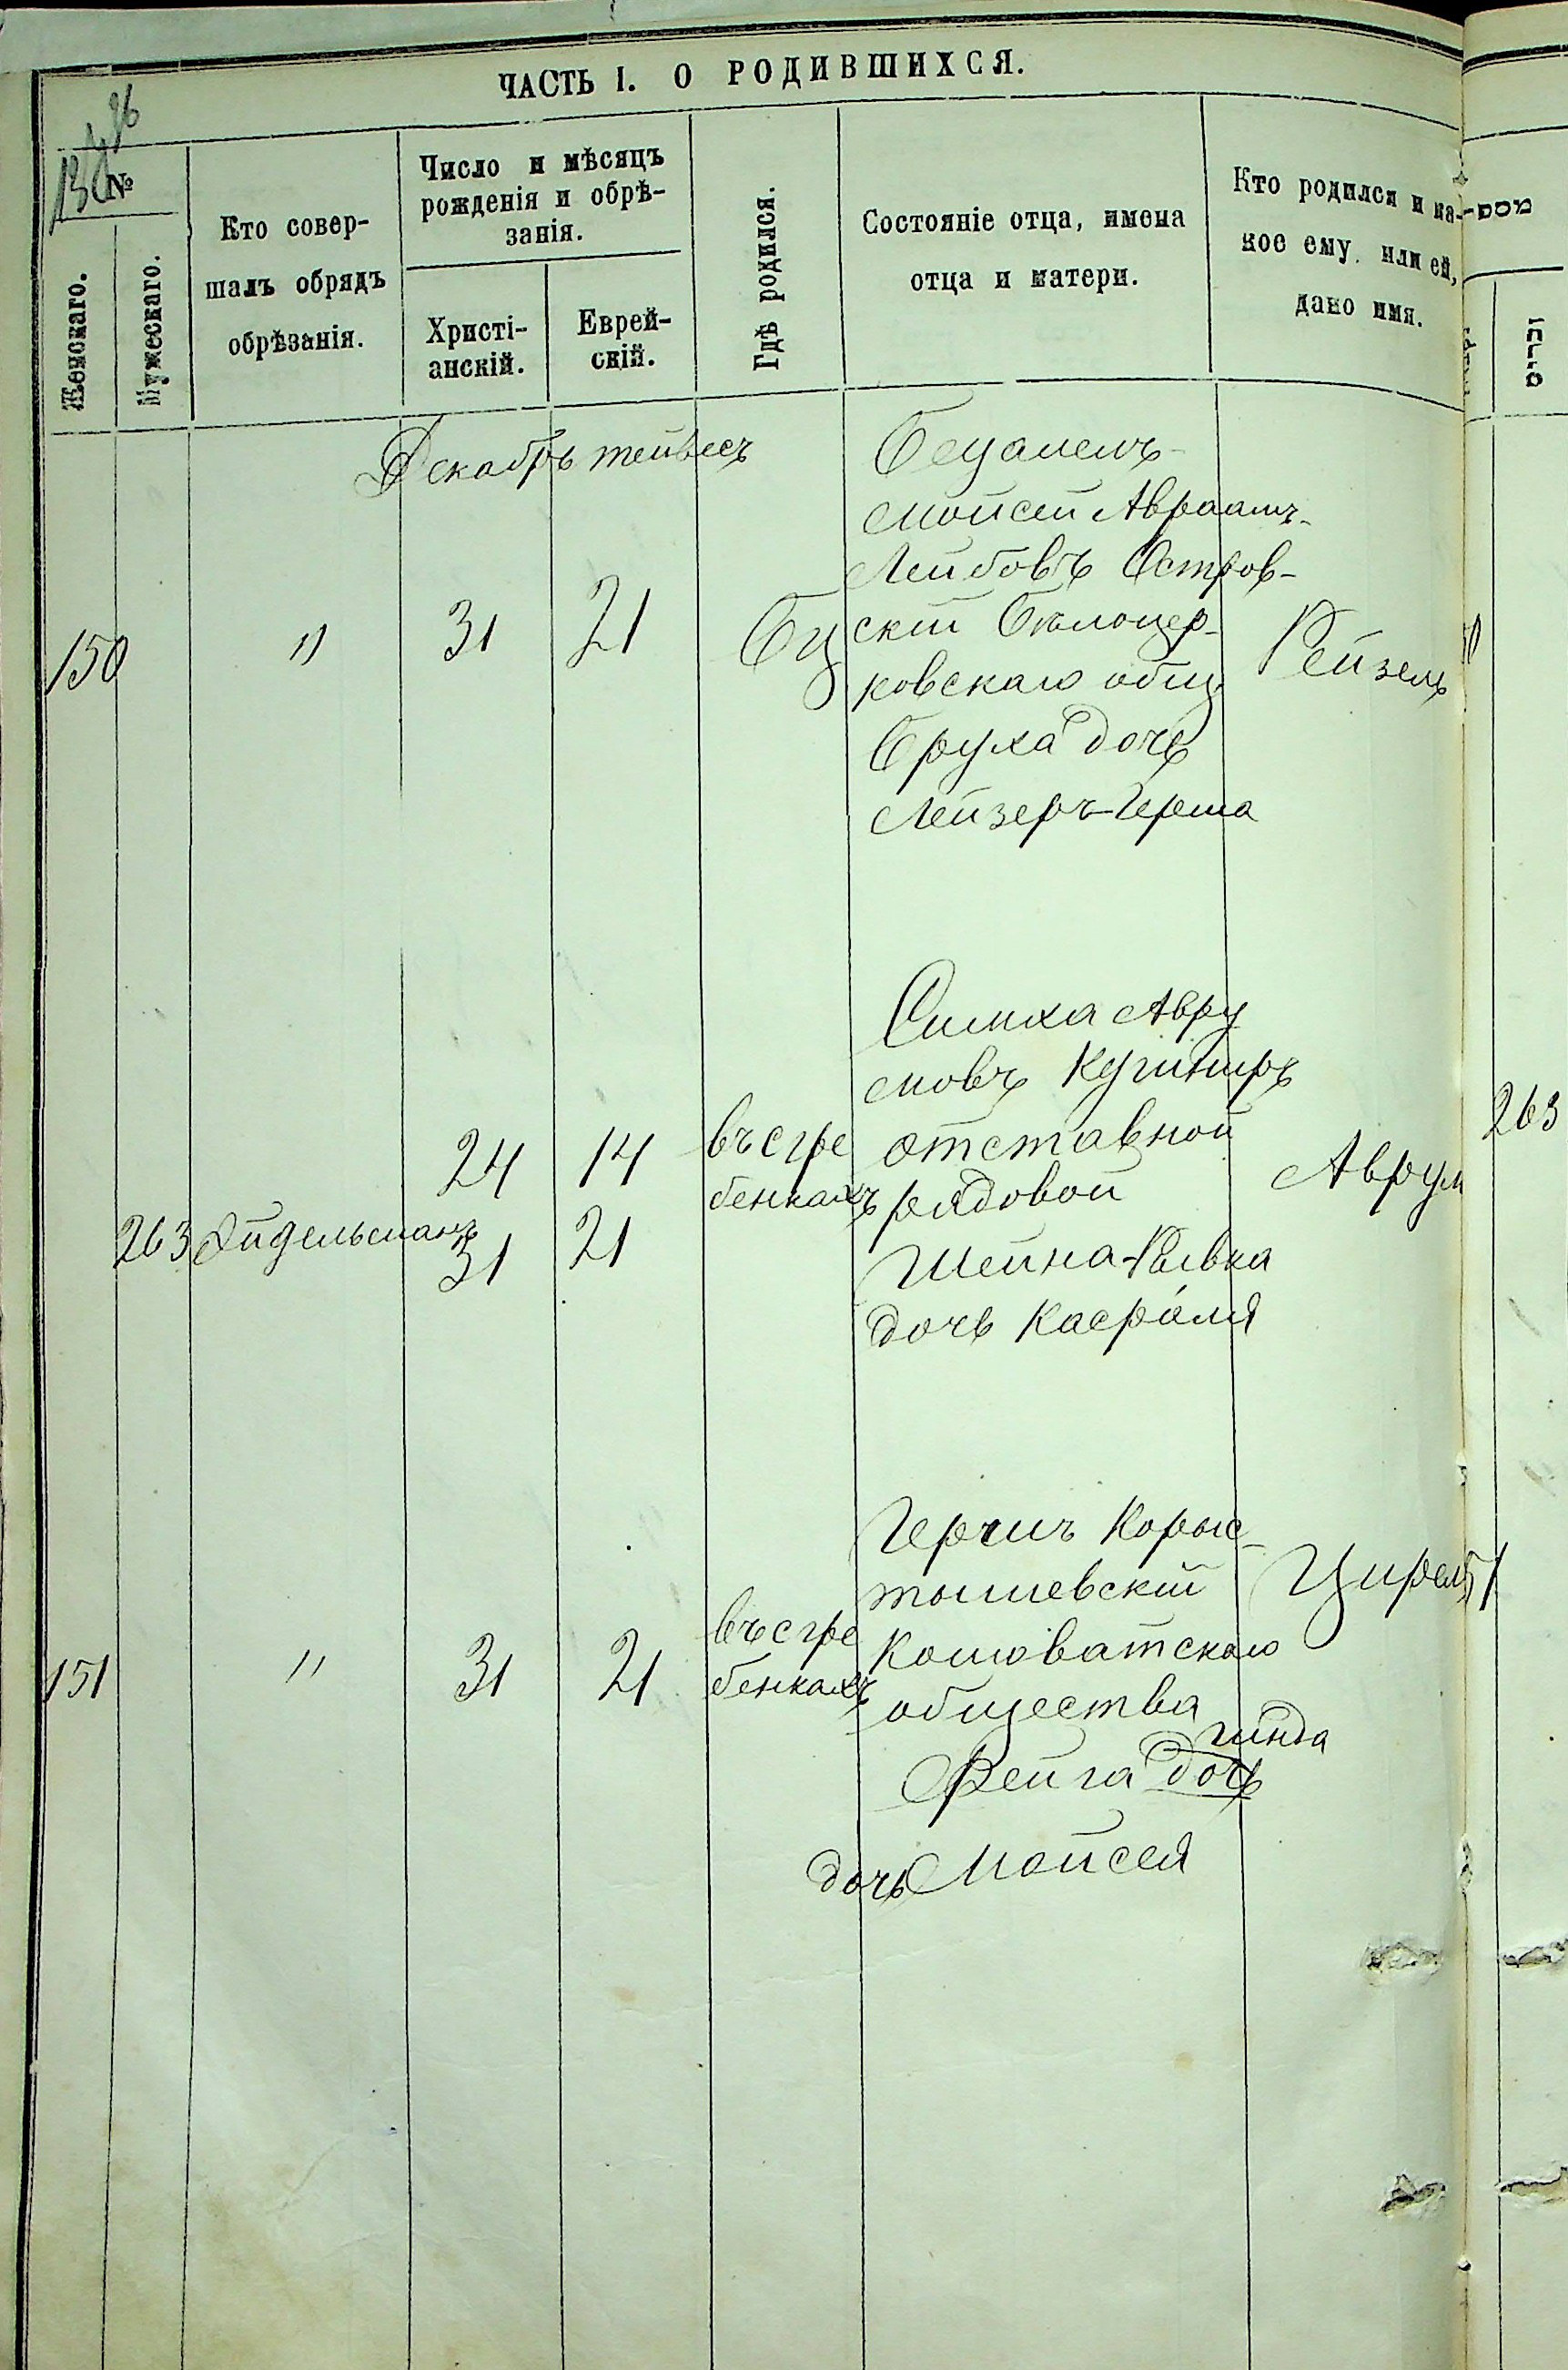 ЧАСТЬ I. О РОДИВШИХСЯ.
№
Женскаго.
Мужескаго.
Кто совер-
шалъ обрядъ
обрѣзанія.
Число и мѣсяцъ
рожденія и обрѣ-
занія.
Христі-
анскій.
Еврей-
скій.
Гдѣ родился.
Состояніе отца, имена
отца и матери.
Кто родился и ка-
кое ему или ей,
дано имя.
Декабрь тейвесъ
150
"
31
21
Бц
Бецалелъ-
Мойсей Авраамъ-
Лейбовъ Остров-
скій Бѣлоцер-
ковскаго общ
Бруха дочь
Лейзеръ-Герша
Рейзель
263
Эйдельманъ
24
14
31
21
въ с гре
бенкахъ
Симха Авру
мовъ Кушниръ
отставной
рядовой
Шейна-Ривка
дочь Касрыля
Аврум
263
151
"
31
21
въ с гре
бенкахъ
Гершъ Корыс-
тышевскій
Кошоватскаго
общества
гинда
Фейга дочь
дочь Мойсея
Цирел